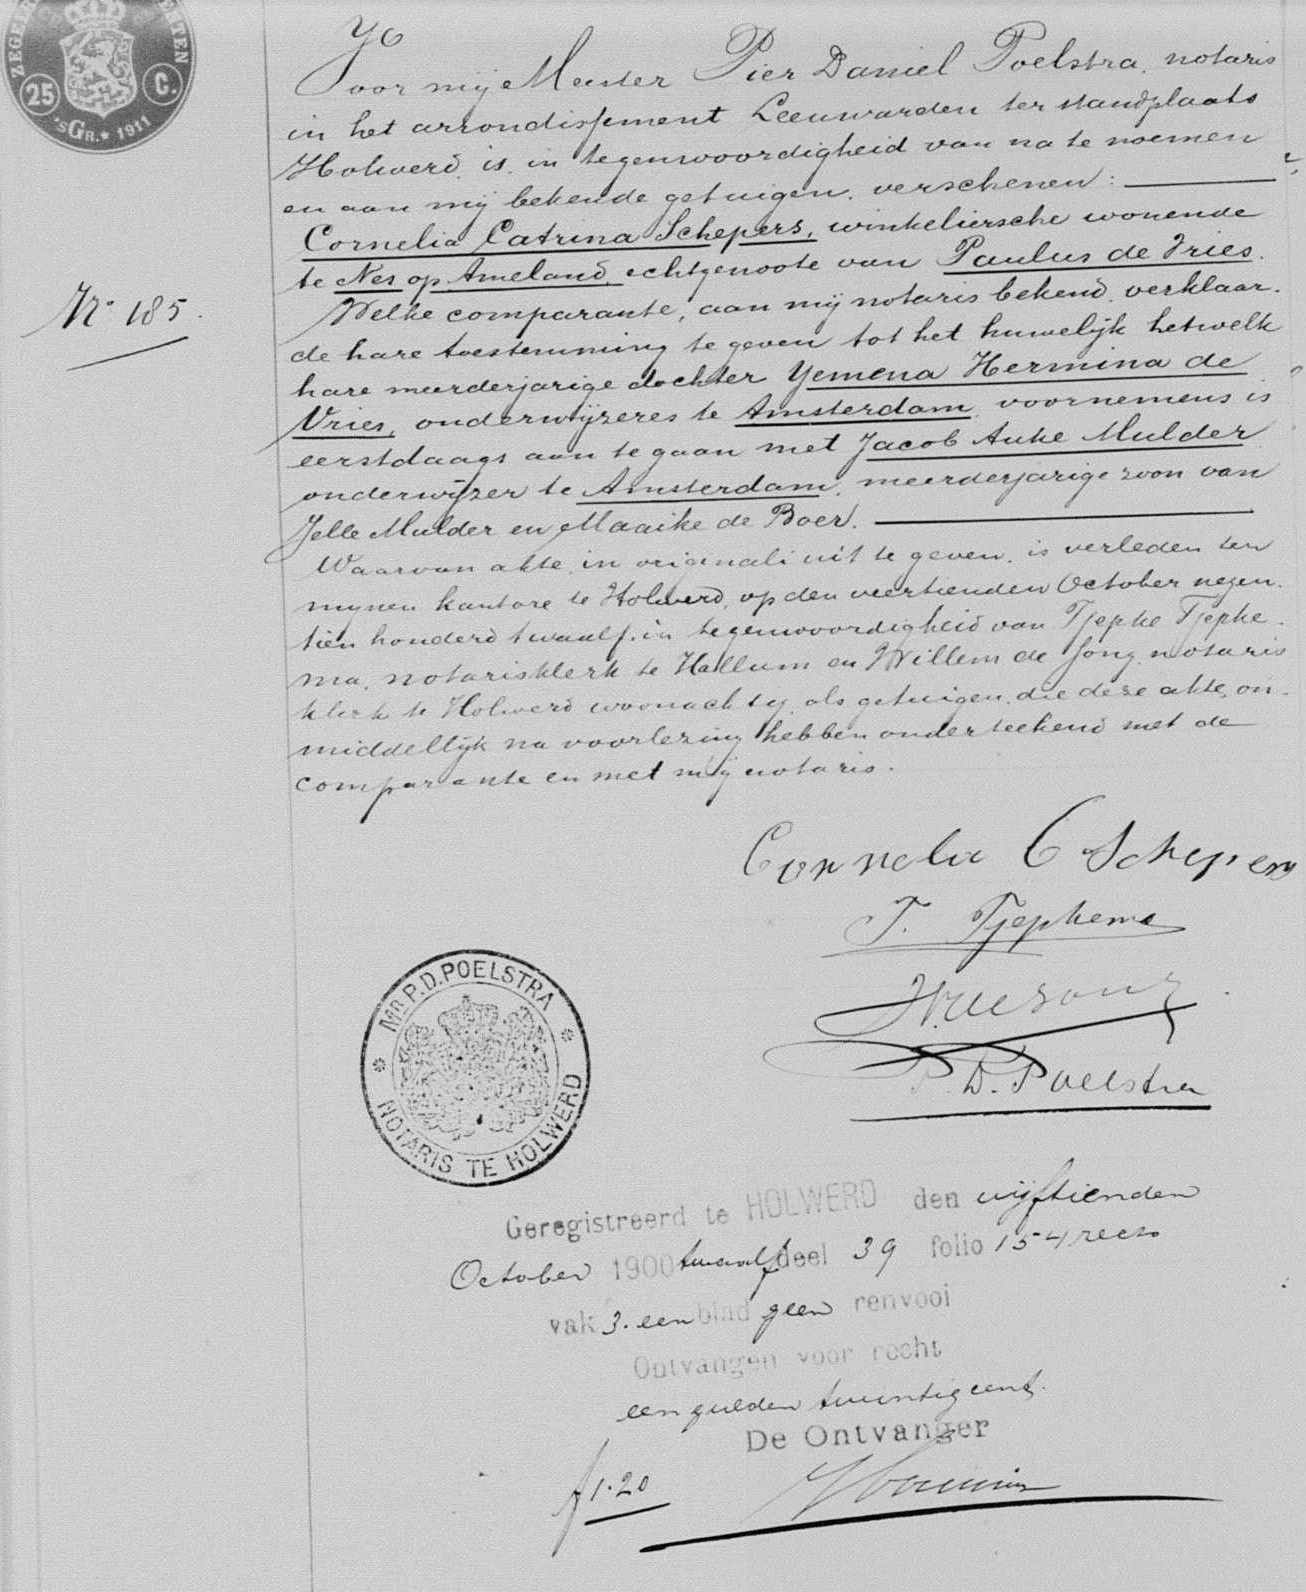 ZEGEL
25 C.
'sGR.★ 1911
Voor mij Meester Pier Daniel Poelstra, notaris
in het arrondissement Leeuwarden ter standplaats
Holwerd, is, in tegenwoordigheid van na te noemen
en aan mij bekende getuigen, verschenen:
Cornelia Catrina Schepers, winkeliersche wonende
te Nes op Ameland, echtgenoote van Paulus de Vries.
Welke comparante, aan mij notaris bekend, verklaar-
de hare toestemming te geven tot het huwelijk hetwelk
hare meerderjarige dochter Yemena Hermina de
Vries, onderwijzeres te Amsterdam, voornemens is
eerstdaags aan te gaan met Jacob Auke Mulder
onderwijzer te Amsterdam, meerderjarige zoon van
Jelle Mulder en Maaike de Boer.
Waarvan akte, in originali uit te geven, is verleden ten
mynen kantore te Holwerd, op den veertienden October negen-
tien honderd twaalf, in tegenwoordigheid van Tjepke Tjepke-
ma, notarisklerk te Hallum en Willem de Jong, notaris
klerk te Holwerd woonachtig, als getuigen, die deze akte, on-
middellijk na voorlezing hebben onderteekend met de
comparante en met mij notaris.
No 185.
Cornelia C Schepers
T. Tjepkema
W. de Jong
P. D. Poelstra
Mr P.D. POELSTRA
NOTARIS TE HOLWERD
Geregistreerd te HOLWERD den vijftienden
October 1900 twaalf deel 39 folio 154 recto
vak 3. een blad geen renvooi
Ontvangen voor recht
een gulden twintig cent.
De Ontvanger
f 1.20